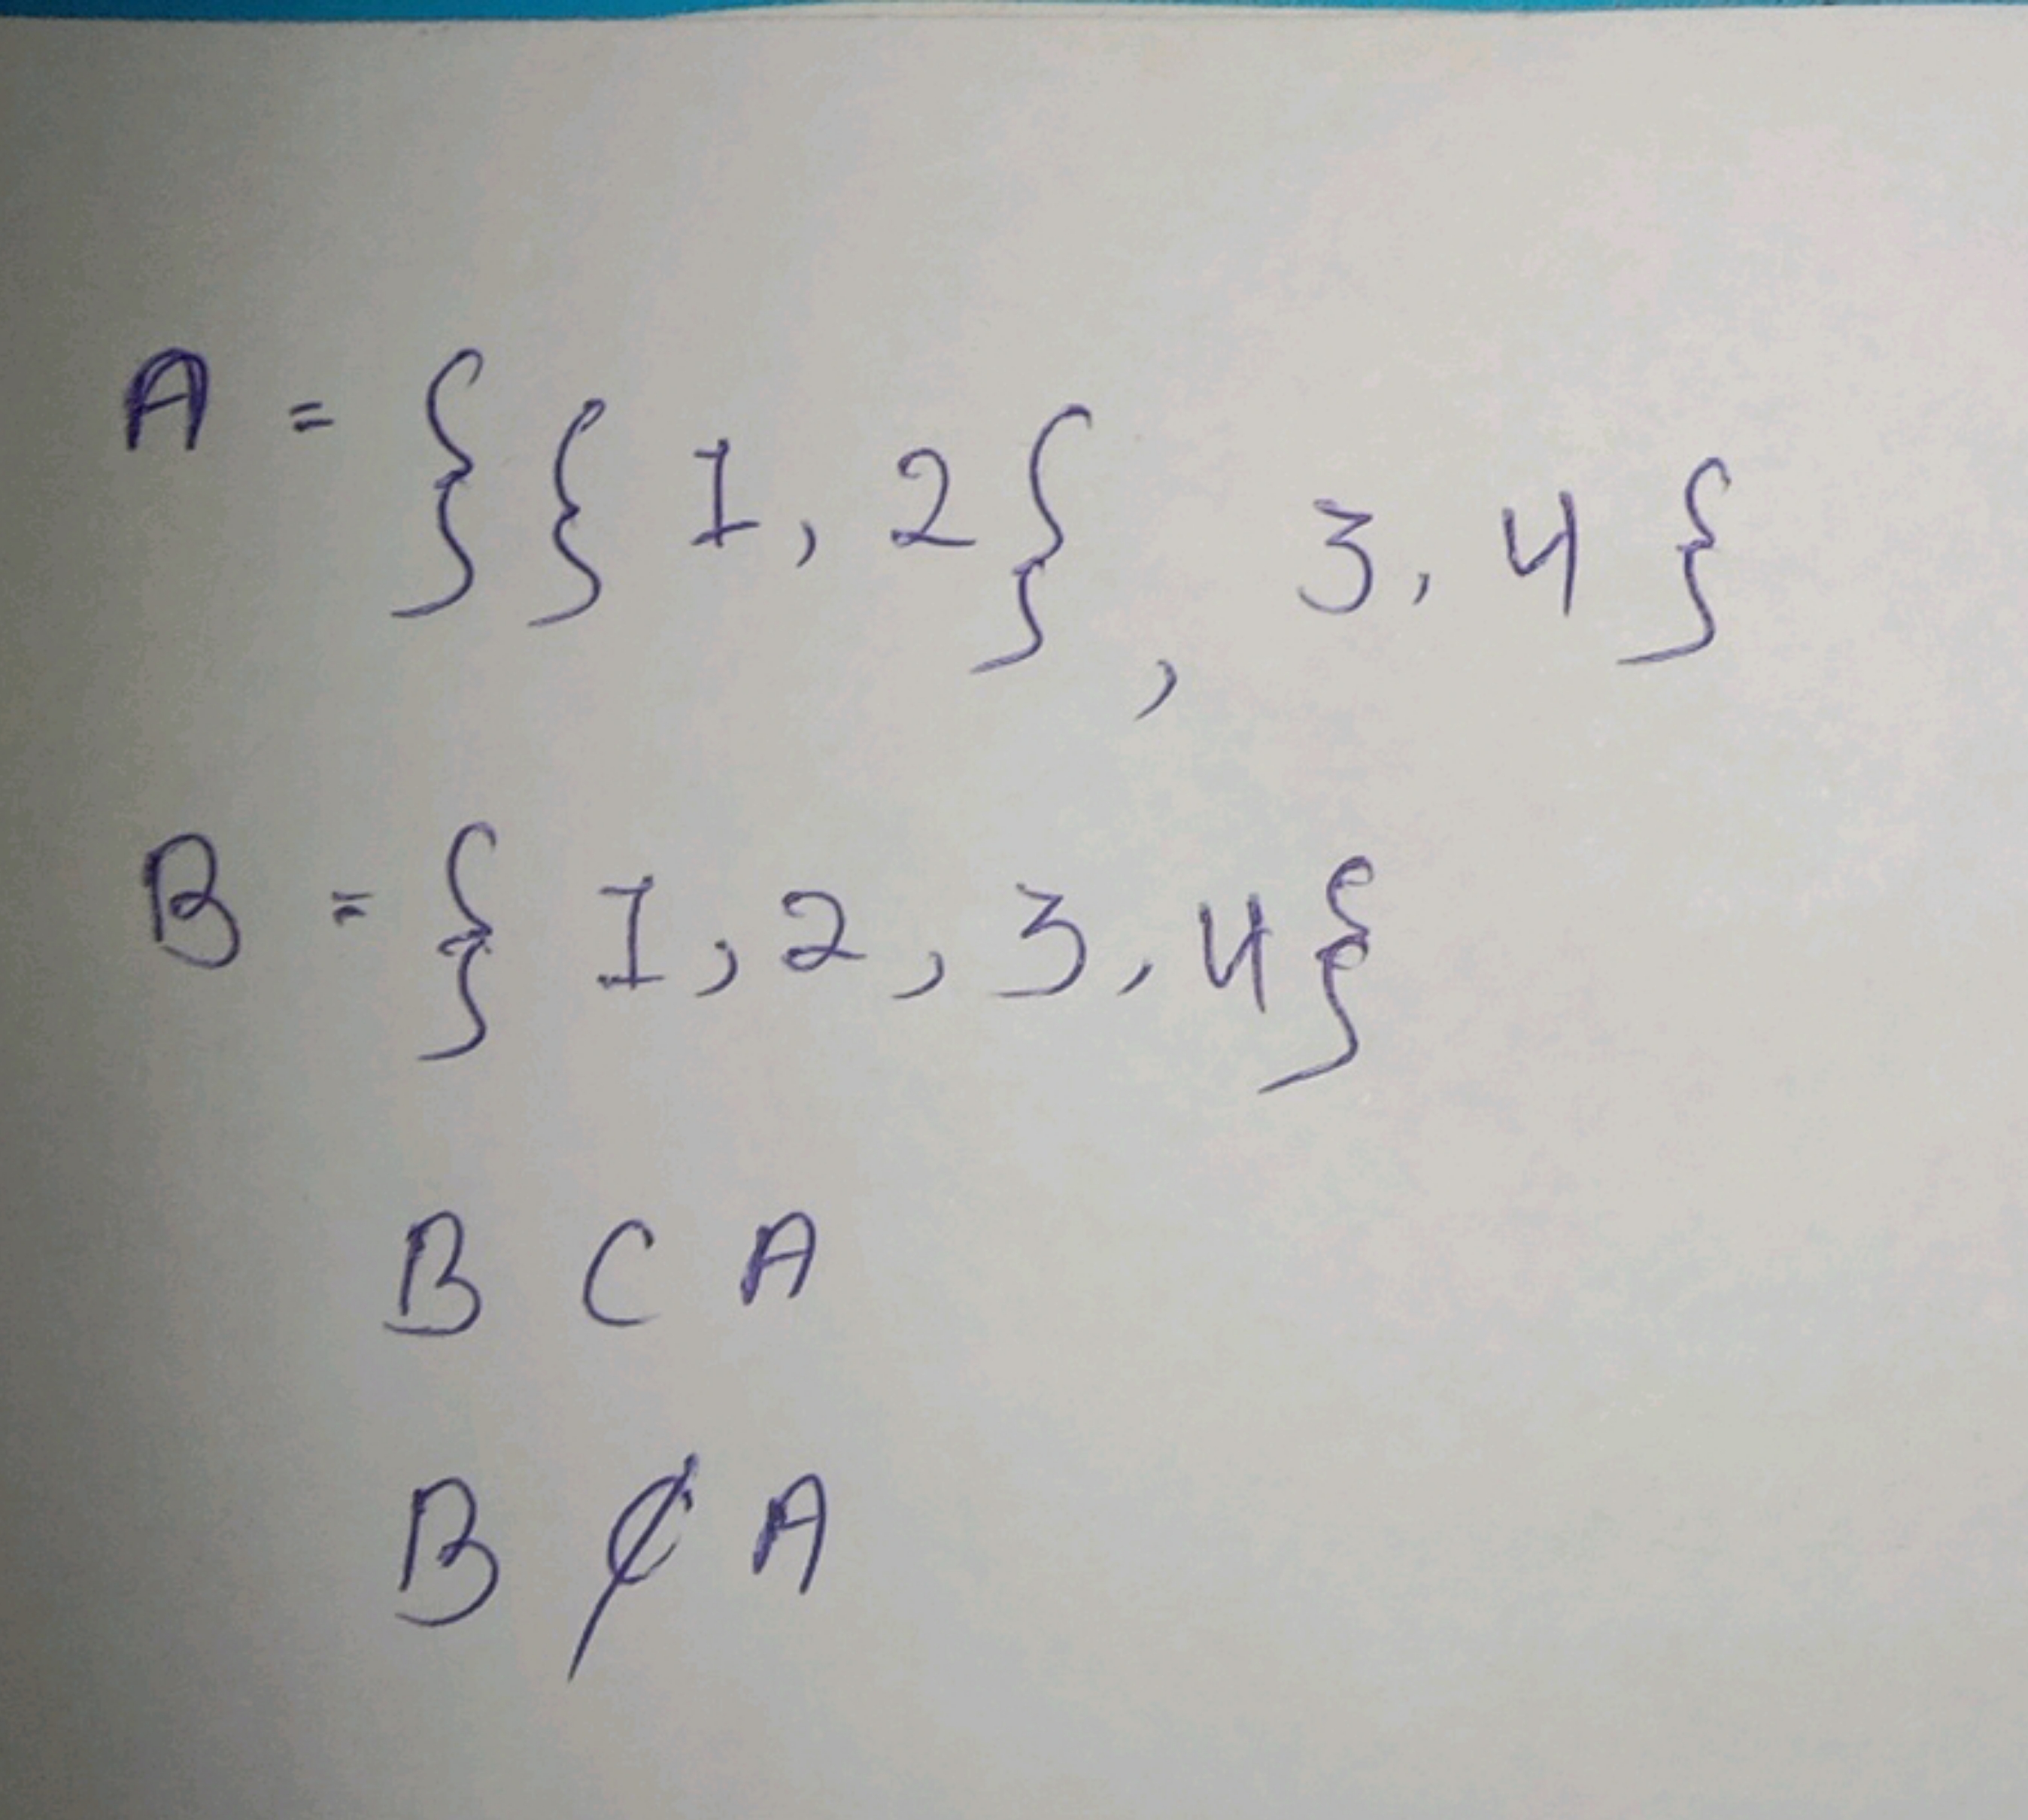 A = {{1, 2}, 3, 4}
B = {1, 2, 3, 4}
B ⊂ A
B ⊄ A